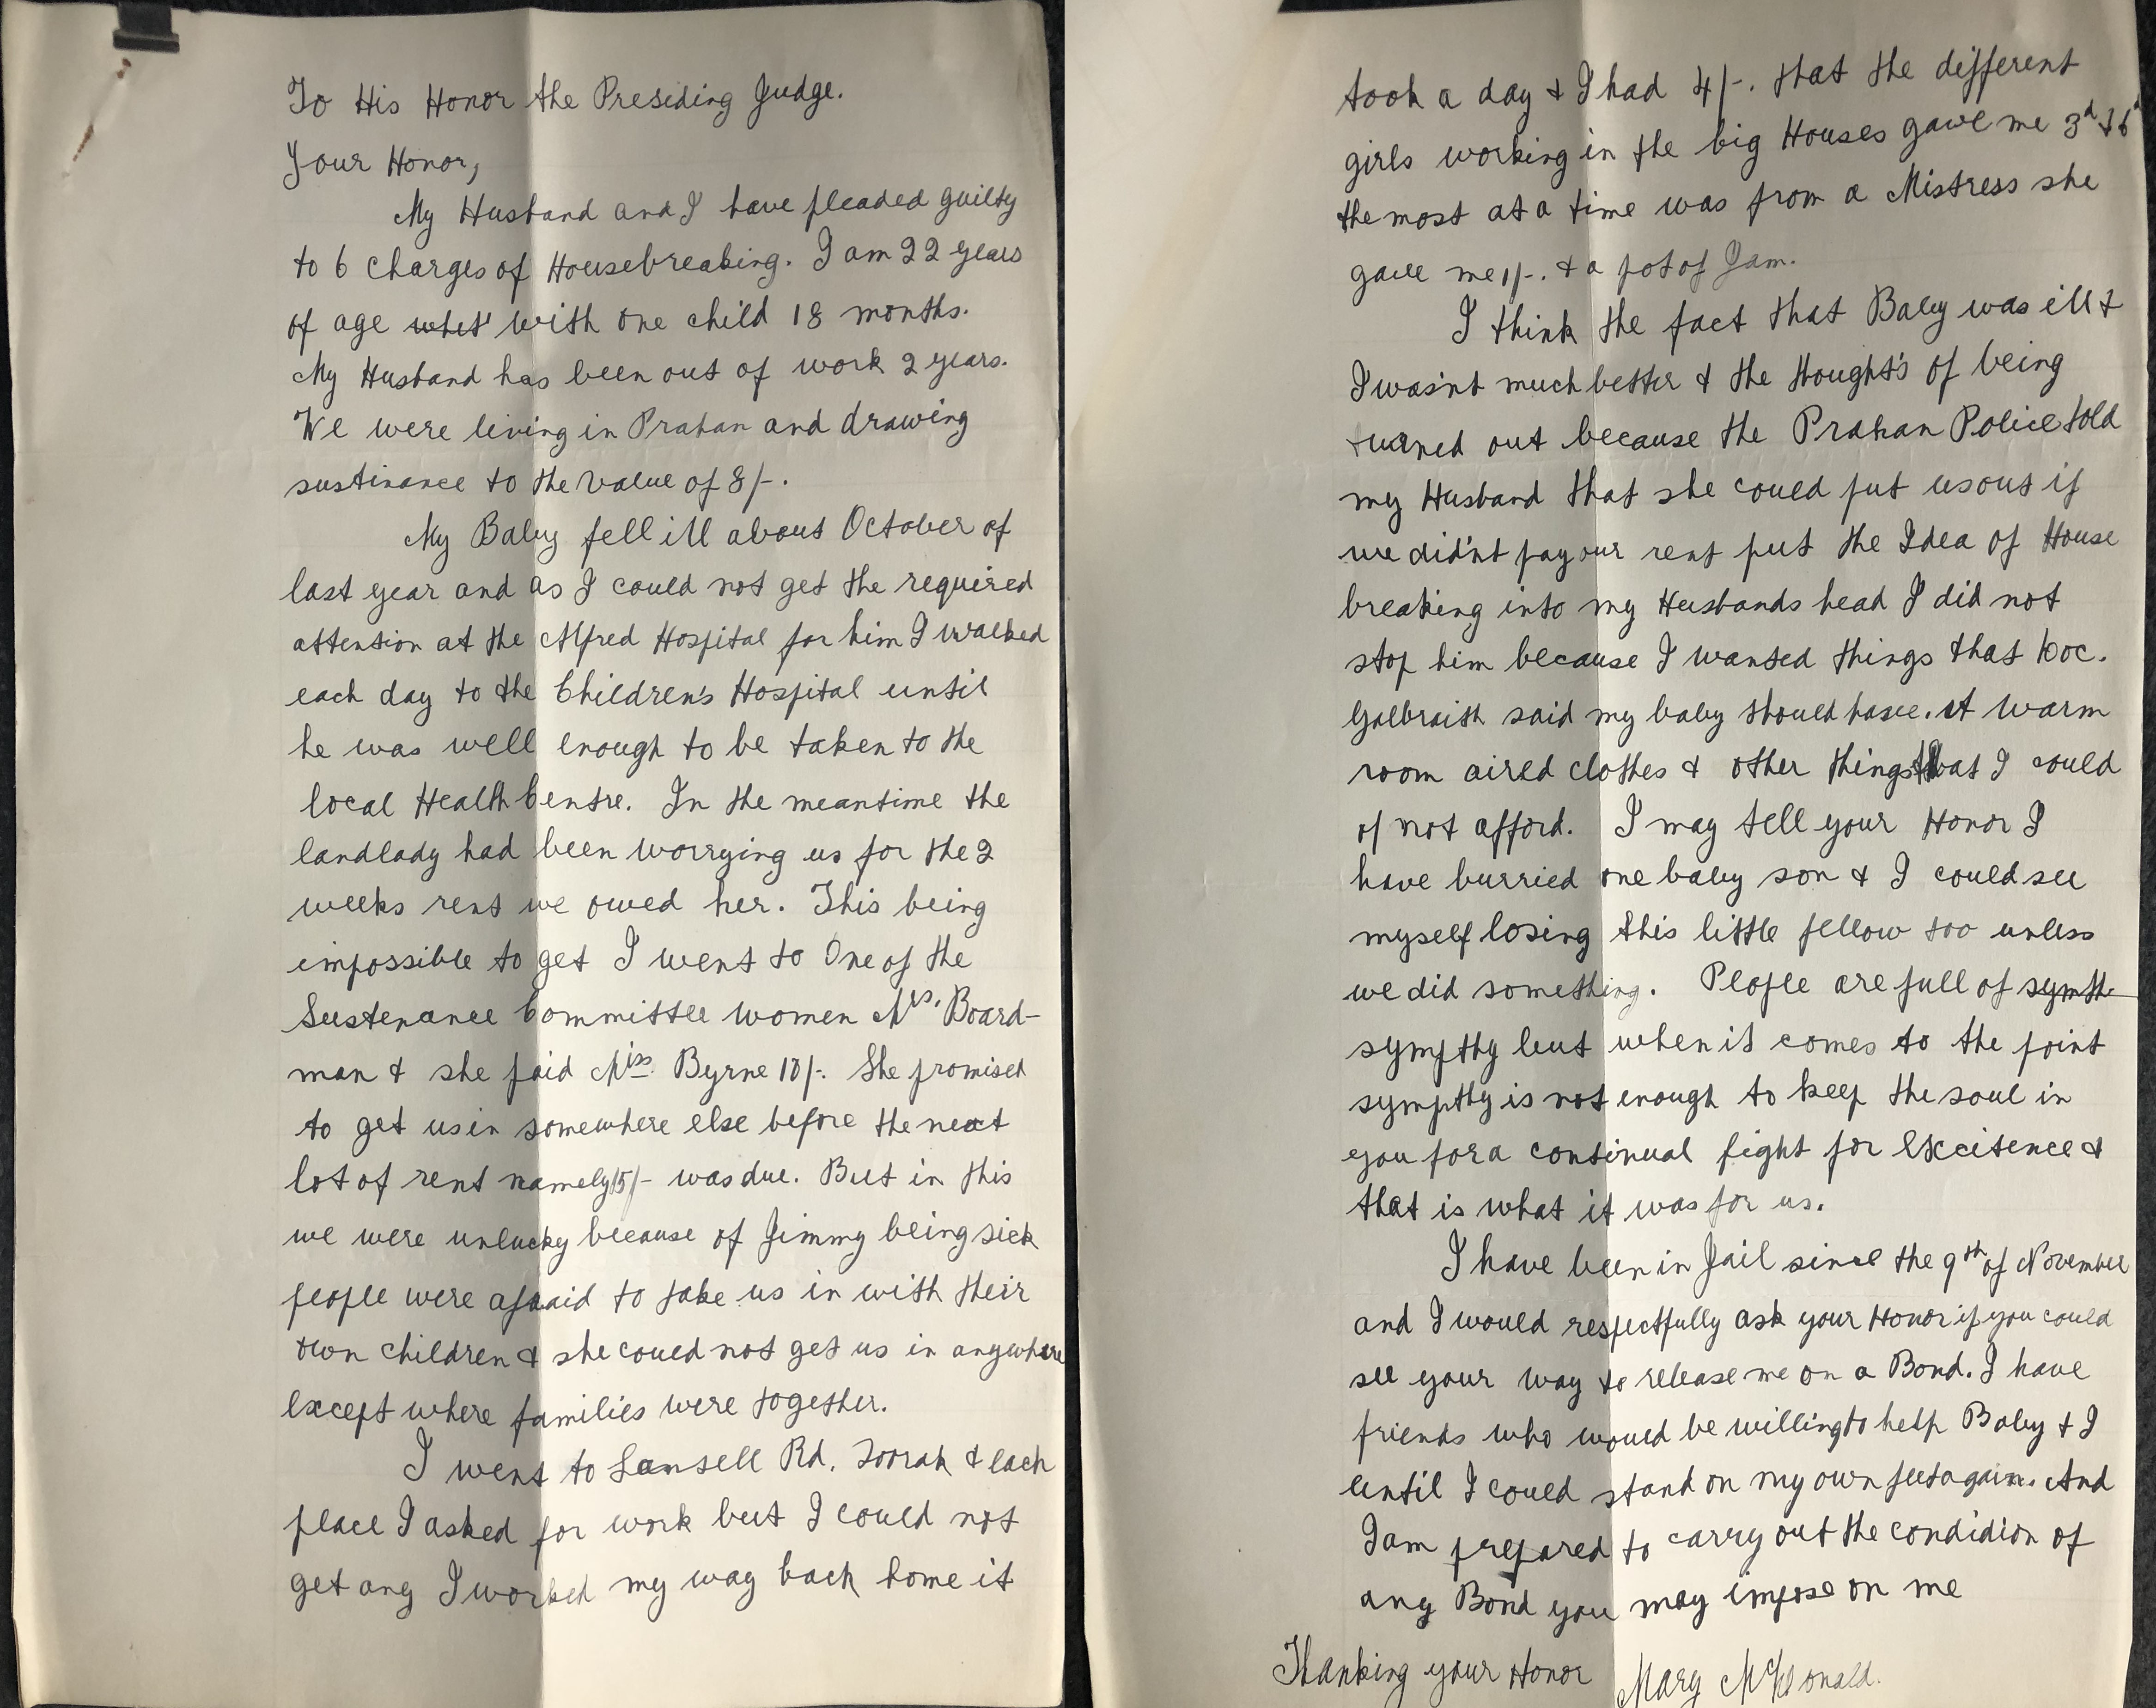 To His Honor the Presiding Judge.
Your Honor,
My Husband and I have pleaded guilty
to 6 charges of Housebreaking. I am 22 years
of age whet' with one child 18 months.
My Husband has been out of work 2 years.
We were living in Prahan and drawing
sustinance to the value of 8/-.
My Baby fell ill about October of
last year and as I could not get the required
attention at the Alfred Hospital for him I walked
each day to the Children's Hospital until
he was well enough to be taken to the
local Health Centre. In the meantime the
landlady had been worrying us for the 2
weeks rent we owed her. This being
impossible to get I went to One of the
Sustenance Committee women Mrs. Board-
man & she paid Miss. Byrne 10/-. She promised
to get us in somewhere else before the next
lot of rent namely 15/- was due. But in this
we were unlucky because of Jimmy being sick
people were afraid to take us in with their
own children & she could not get us in anywhere
except where families were together.
I went to Lansell Rd. Toorak & each
place I asked for work but I could not
get any I worked my way back home it
took a day & I had 4/-. that the different
girls working in the big Houses gave me 3d & 6d
the most at a time was from a Mistress she
gave me 1/-. & a pot of Jam.
I think the fact that Baby was ill &
I was'nt much better & the thought's of being
turned out because the Prahan Police told
my Husband that she could put us out if
we did'nt pay our rent put the Idea of House
breaking into my Husbands head I did not
stop him because I wanted things that Doc.
Galbraith said my baby should have. A warm
room aired clothes & other things that I could
of not afford. I may tell your Honor I
have burried one baby son & I could see
myself losing this little fellow too unless
we did something. People are full of symth
sympthy but when it comes to the point
sympthy is not enough to keep the soul in
you for a continual fight for Excitence &
that is what it was for us.
I have been in Jail since the 9th of November
and I would respectfully ask your Honor if you could
see your way to release me on a Bond. I have
friends who would be willing to help Baby & I
until I could stand on my own feet again. And
I am prepared to carry out the condidion of
any Bond you may impose on me
Thanking your Honor Mary McDonald.